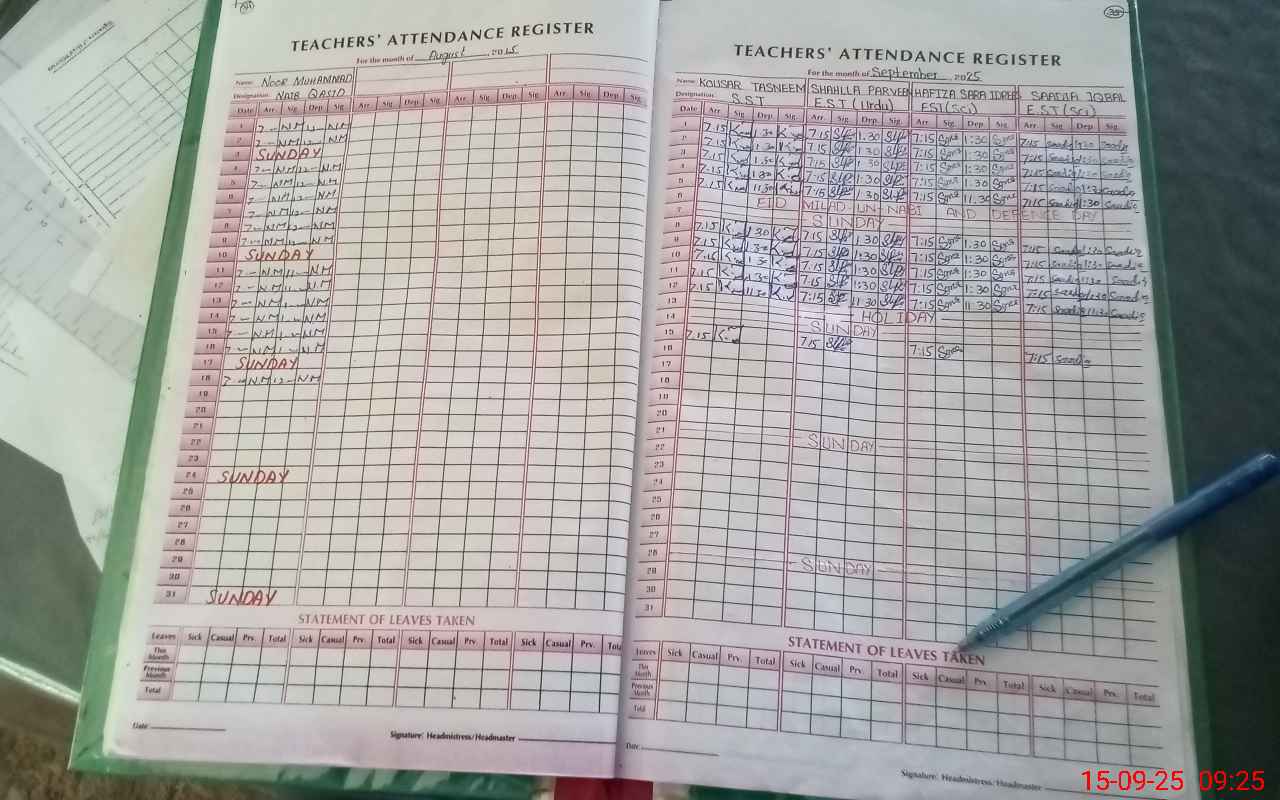 34
TEACHERS' ATTENDANCE REGISTER
For the month of August 2025
Name: NOOR MUHAMMAD
Designation: NAIB QASID
Date Arr. Sig. Dep. Sig. Arr. Sig. Dep. Sig. Arr. Sig. Dep. Sig. Arr. Sig. Dep. Sig.
1 7 - NM 12 - NM
2 7 - NM 12 - NM
3 SUNDAY
4 7 - NM 12 - NM
5 7 - NM 12 - NM
6 7 - NM 12 - NM
7 7 - NM 12 - NM
8 7 - NM 12 - NM
9 7 - NM 12 - NM
10 SUNDAY
11 7 - NM 11 - NM
12 7 - NM 12 - NM
13 7 - NM 1 - NM
14 7 - NM 1 - NM
15 7 - NM 1 - NM
16 7 - NM 1 - NM
17 SUNDAY
18 7 - NM 12 - NM
19
20
21
22
23
24 SUNDAY
25
26
27
28
29
30
31 SUNDAY
STATEMENT OF LEAVES TAKEN
Leaves Sick Casual Prv. Total Sick Casual Prv. Total Sick Casual Prv. Total Sick Casual Prv. Total
This Month
Previous Month
Total
Date
Signature: Headmistress/Headmaster
35
TEACHERS' ATTENDANCE REGISTER
For the month of September 2025
Name: KOUSAR TASNEEM SHAHLLA PARVEEN HAFIZA SARA IDREES SAADIA IQBAL
Designation: S.S.T E.S.T (Urdu) EST(Sci) E.S.T (Sci)
Date Arr. Sig. Dep. Sig. Arr. Sig. Dep. Sig. Arr. Sig. Dep. Sig. Arr. Sig. Dep. Sig.
1 7.15 1.30 7:15 1.30 7:15 1:30 7:15 Saadia 1:30 Saadia
2 7.15 1.30 7:15 1:30 7:15 1:30 7:15 Saadia 1:30 Saadia
3 7.15 1.30 7:15 1:30 7:15 1:30 7:15 Saadia 1:30 Saadia
4 7.15 1.30 7:15 1:30 7:15 1.30 7:15 Saadia 1:30 Saadia
5 7.15 11.30 7:15 11.30 7:15 11.30 7:15 Saadia 11:30 Saadia
6 EID MILAD UN-NABI AND DEFENCE DAY
7 SUNDAY
8 7.15 1.30 7:15 1:30 7:15 1.30 7:15 Saadia 1:30 Saadia
9 7.15 1.30 7:15 1:30 7:15 1:30 7:15 Saadia 1:30 Saadia
10 7.15 1.30 7:15 1:30 7:15 1:30 7:15 Saadia 1:30 Saadia
11 7.15 1.30 7:15 1:30 7:15 1:30 7:15 Saadia 1:30 Saadia
12 7.15 11.30 7:15 11.30 7:15 11.30 7:15 Saadia 11:30 Saadia
13 HOLIDAY
14 SUNDAY
15 7.15 7:15 7:15 7:15 Saadia
16
17
18
19
20
21 SUNDAY
22
23
24
25
26
27
28 SUNDAY
29
30
31
STATEMENT OF LEAVES TAKEN
Leaves Sick Casual Prv. Total Sick Casual Prv. Total Sick Casual Prv. Total Sick Casual Prv. Total
This Month
Previous Month
Total
Date
Signature: Headmistress/Headmaster
15-09-25 09:25